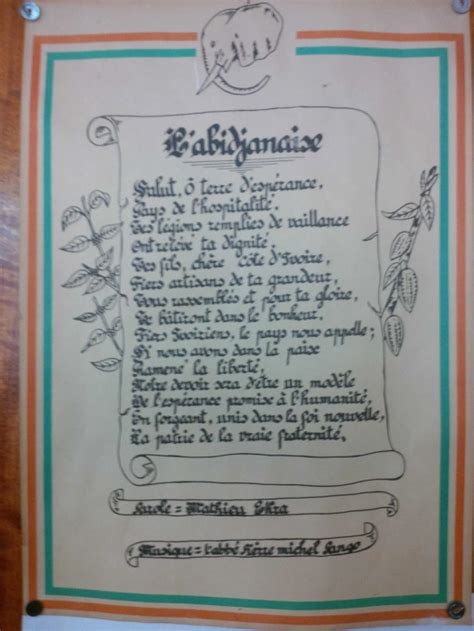 L'abidjanaise
Salut, Ô terre d'espérance,
Pays de l'hospitalité.
Tes légions remplies de vaillance
Ont relevé ta dignité.
Tes fils, chère côte d'Ivoire,
Fiers artisans de ta grandeur,
Tous rassemblés et pour ta gloire,
Te bâtiront dans le bonheur.
Fiers Ivoiriens, le pays nous appelle;
Si nous avons dans la paise
Ramené la liberté,
Notre devoir sera d'être un modèle
De l'espérance promise à l'humanité,
En forgeant, unis dans la foi nouvelle,
La patrie de la vraie fraternité,
Parole = Mathieu Ekra
Musique = l'abbé Pierre michel Pango